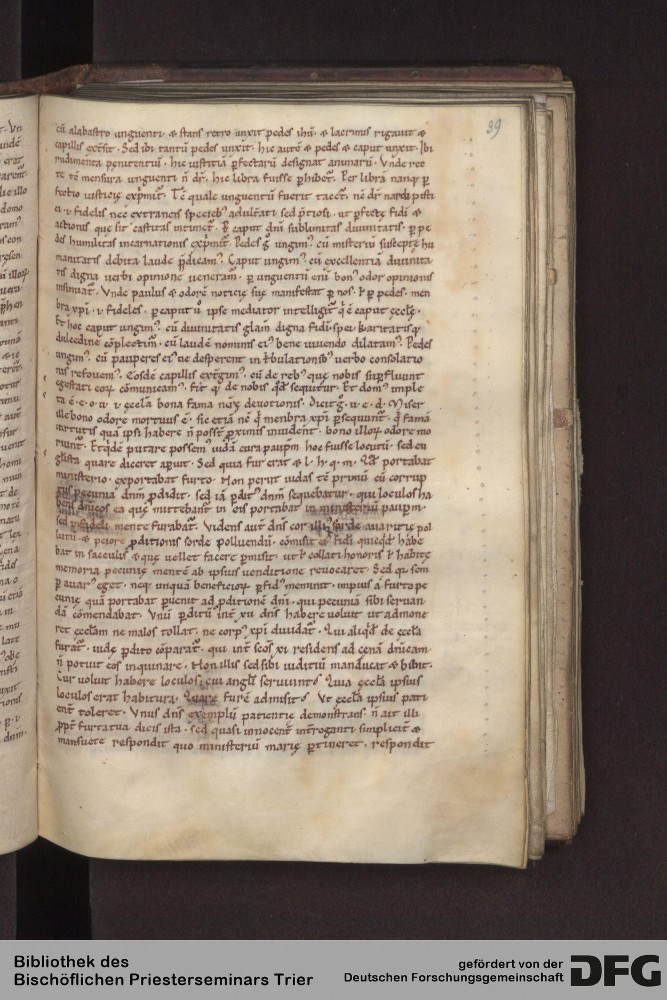 39
cū alabastro unguenti & stans retro unxit pedes ihū. & lacrimis rigauit &
capillis extsit. Sed ibi tantū pedes unxit. hic autē & pedes & caput unxit. Ibi
rudimenta penitentiū. hic iustitiā pfectarū designat animarū. Vnde rec
te tē mensura unguenti n̄ dr̄. hic libra fuisse phibet. Per librā nanq; p
fectio iusticię exprimit. Tē quale unguentū fuerit tacet. nē dr̄ nardi pisti
ci. i. fidelis nec extraneis specieb; adultati sed ptiosi. ut pfectę fidi &
actionis que sit castitas intincet. P caput dn̄i sublimitas diuinitatis. p pe
des humilitas incarnationis exprimit. Pedes g ungim; cū misteriū susceptę hu
manitatis debita laude pdicam. Caput ungim; cū excellentiā diuinita
tis digna uerbi opinione ueneram. p unguentū enī bon; odor opinionis
insinuat. Vnde paulus & odorē noticię suę manifestat p nos. & p pedes. men
bra xpi. i. fideles. p caput u ipse mediator intelligit q ē caput ęcclę.
Et hoc caput ungim; cū diuinitatis gl̄am digna fidi. spei. karitatisq;
dulcedine cōplectim. cū laudē nominis ei; bene uiuendo dilatam; Pedes
ungim; cū pauperes ei; ne desperent in tbulationib; uerbo consolatio
nis refouem; Eosdē capillis extgim; cū de reb; quę nobis supfluunt
egestati eorū cōmunicam; fit q de nobis qd sequitur. Et dom; imple
ta ē. e. o. u. i. ęcclā bona fama nr̄ę deuotionis. Dicit g. u. e. d. Miser
ille bono odore mortuus ē. sic etiā nē q menbra xpi psequunt. q famā
uirtutis quā ipsi habere n̄ posst pximis inuident. bono illorū odore mo
riunt. Et qdē putare possem iudā cura paupm hoc fuisse locutū. sed eu
glista quare diceret apuit. Sed quia fur erat & l. h. q. m. Qd portabat
ministerio. exportabat furto. Non perit iudas tē primū cū corrup
tus pecunia dnm pdidit. sed iā pdit; dnm sequebatur. qui loculos ha
bens dn̄icos ea quę mittebant in eis portabat in ministeriū paupm.
sed infideli mente furabat. Videns aut dn̄s cor illi; sorde auaritię pol
lutū & peiore pditionis sorde polluendū. cōmisit ei fidi quicqd habe
bat in sacculis & quę uellet facere pmisit. ut t collati honoris t habitę
memoria pecunię mentē ab ipsius uenditione reuocaret. Sed q sem
p auar; eget. neq; unquā beneficiorū pfid; meminit. impius a furto pe
cunię quā portabat puenit ad pditionē dn̄i. qui pecuniā sibi seruan
dā cōmendabat. Vnū pditū int xii dn̄s habere uoluit ut admone
ret ęcclam ne malos tollat. ne corp; xpi diuidat. Qui aliqd de ęccla
furat. iudę pdito cōparat. qui int scōs xi residens ad cenā dn̄icam
n̄ potuit eos inquinare. Non illis sed sibi iuditiū manducat & bibit.
Cur uoluit habere loculos. cui angli seruiunt. Quia ęccla ipsius
loculos erat habitura. Quare furē admisit. Vt ęccla ipsius pati
ent toleret. Vnus dn̄s exemplū patientię demonstrans n̄ ait illi
ppt furta tua dicis ista. sed quasi innocent introganti simplicit &
mansuete respondit quo ministeriū marię ptineret. respondit
Bibliothek des
Bischöflichen Priesterseminars Trier
gefördert von der
Deutschen Forschungsgemeinschaft
DFG